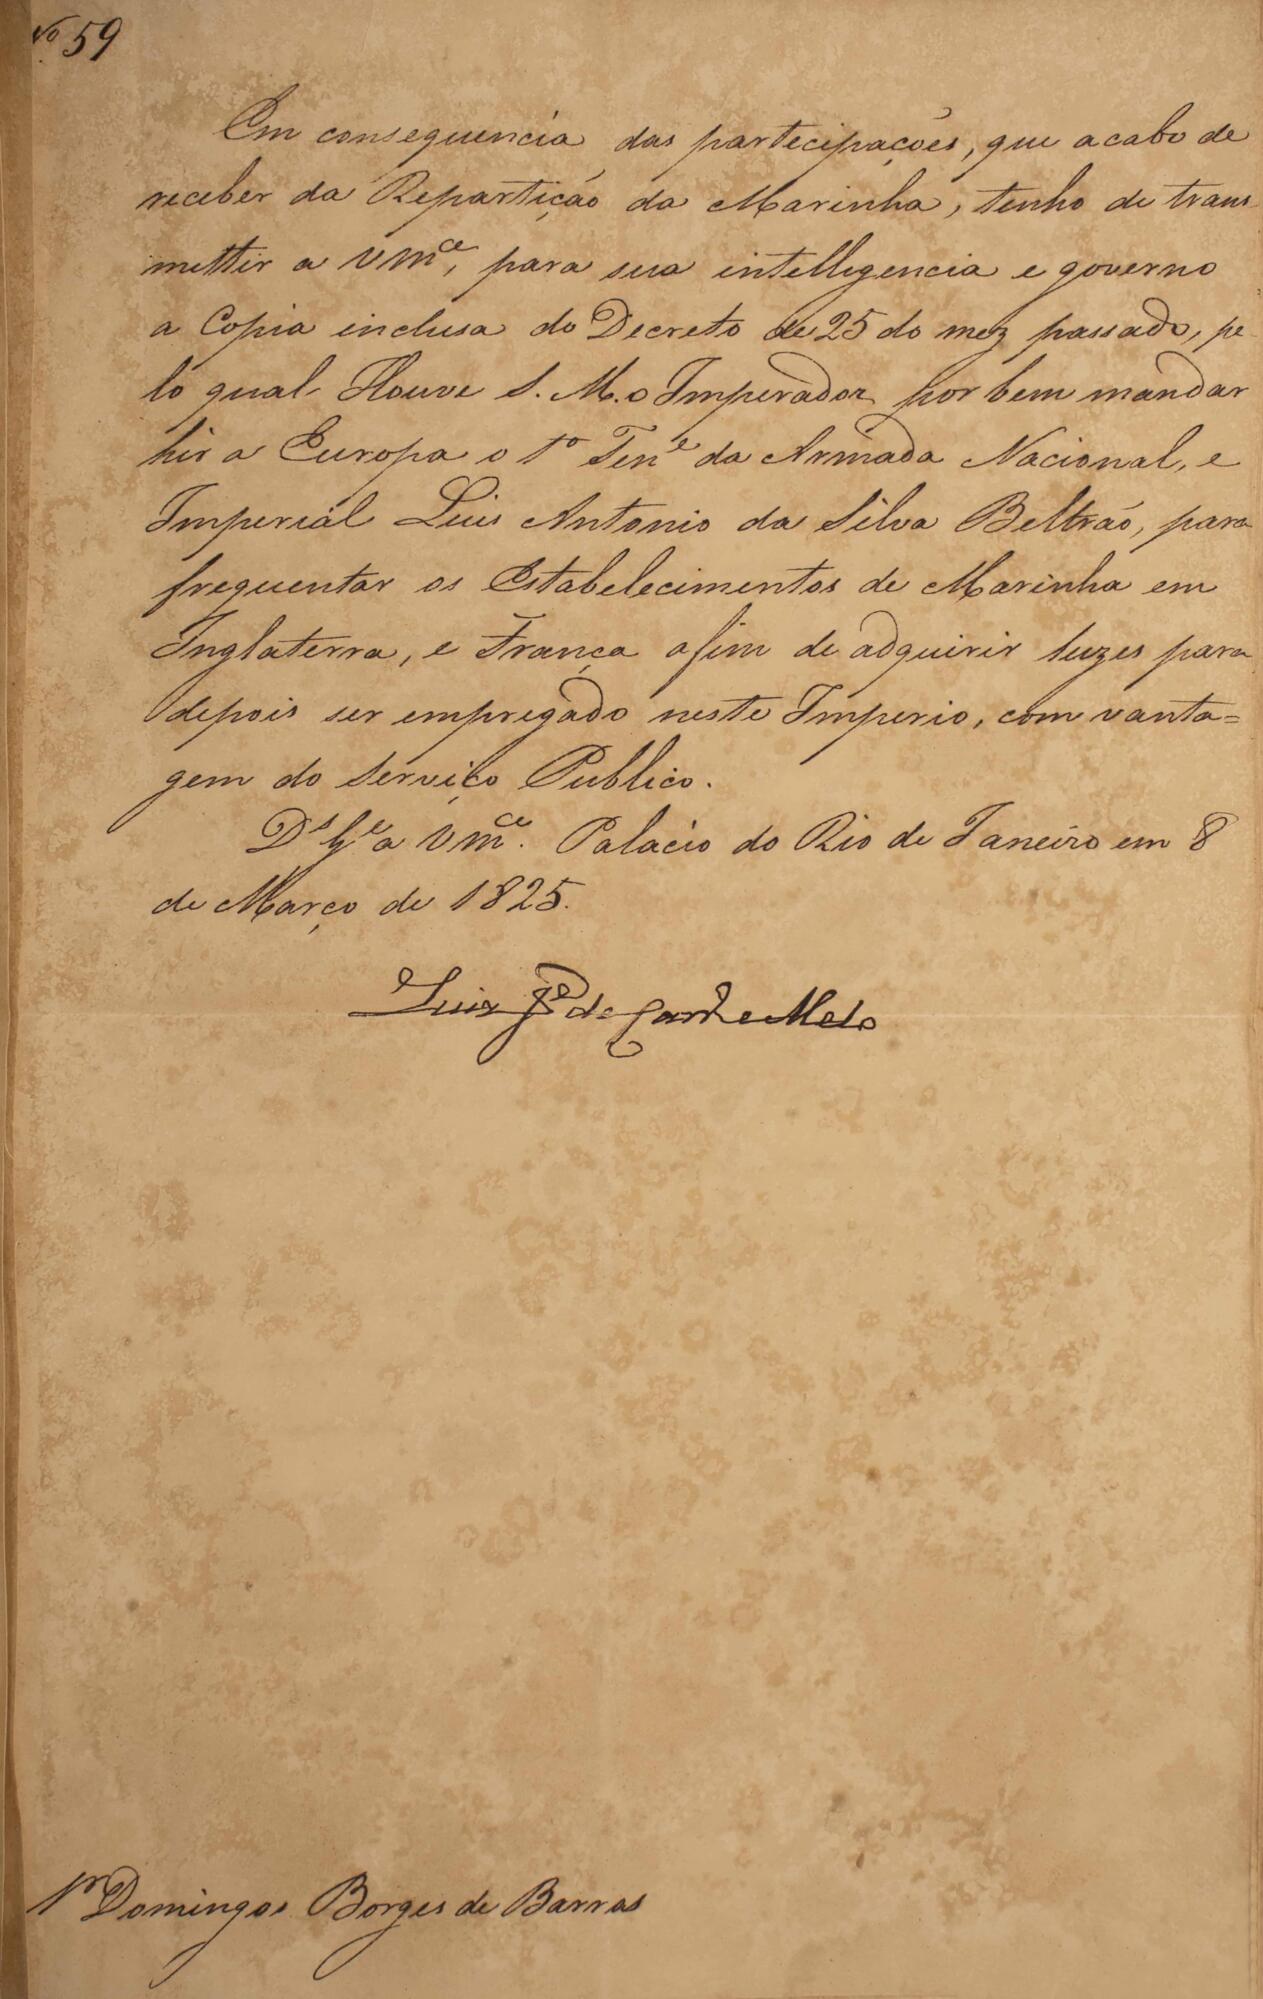 Nº 59
Em consequencia das partecipações, que acabo de
receber da Repartição da Marinha, tenho de trans
mettir a Vmce, para sua intelligencia e governo
a Copia inclusa do Decreto de 25 do mez passado, pe
lo qual Houve S. M. o Imperador por bem mandar
hir a Europa o 1º Tene da Armada Nacional, e
Imperial Luis Antonio da Silva Beltrão, para
frequentar os Estabelecimentos de Marinha em
Inglaterra, e França afim de adquirir luzes para
depois ser empregado neste Imperio, com vanta=
gem do Serviço Publico.
Ds Ge a Vmce. Palacio do Rio de Janeiro em 8
de Março de 1825.
Luiz Je de Carvo e Melo
Sr Domingos Borges de Barros